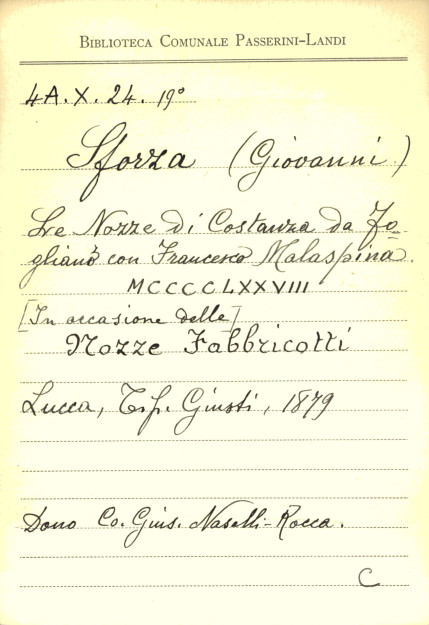 BIBLIOTECA COMUNALE PASSERINI-LANDI
4A. X. 24. 19º
Sforza (Giovanni)
Le Nozze di Costanza da Fo-
gliano con Francesco Malaspina.
MCCCCLXXVIII
[In occasione delle]
Nozze Fabbricotti
Lucca, Tip. Giusti, 1879
Dono Co. Gius. Naselli-Rocca.
C